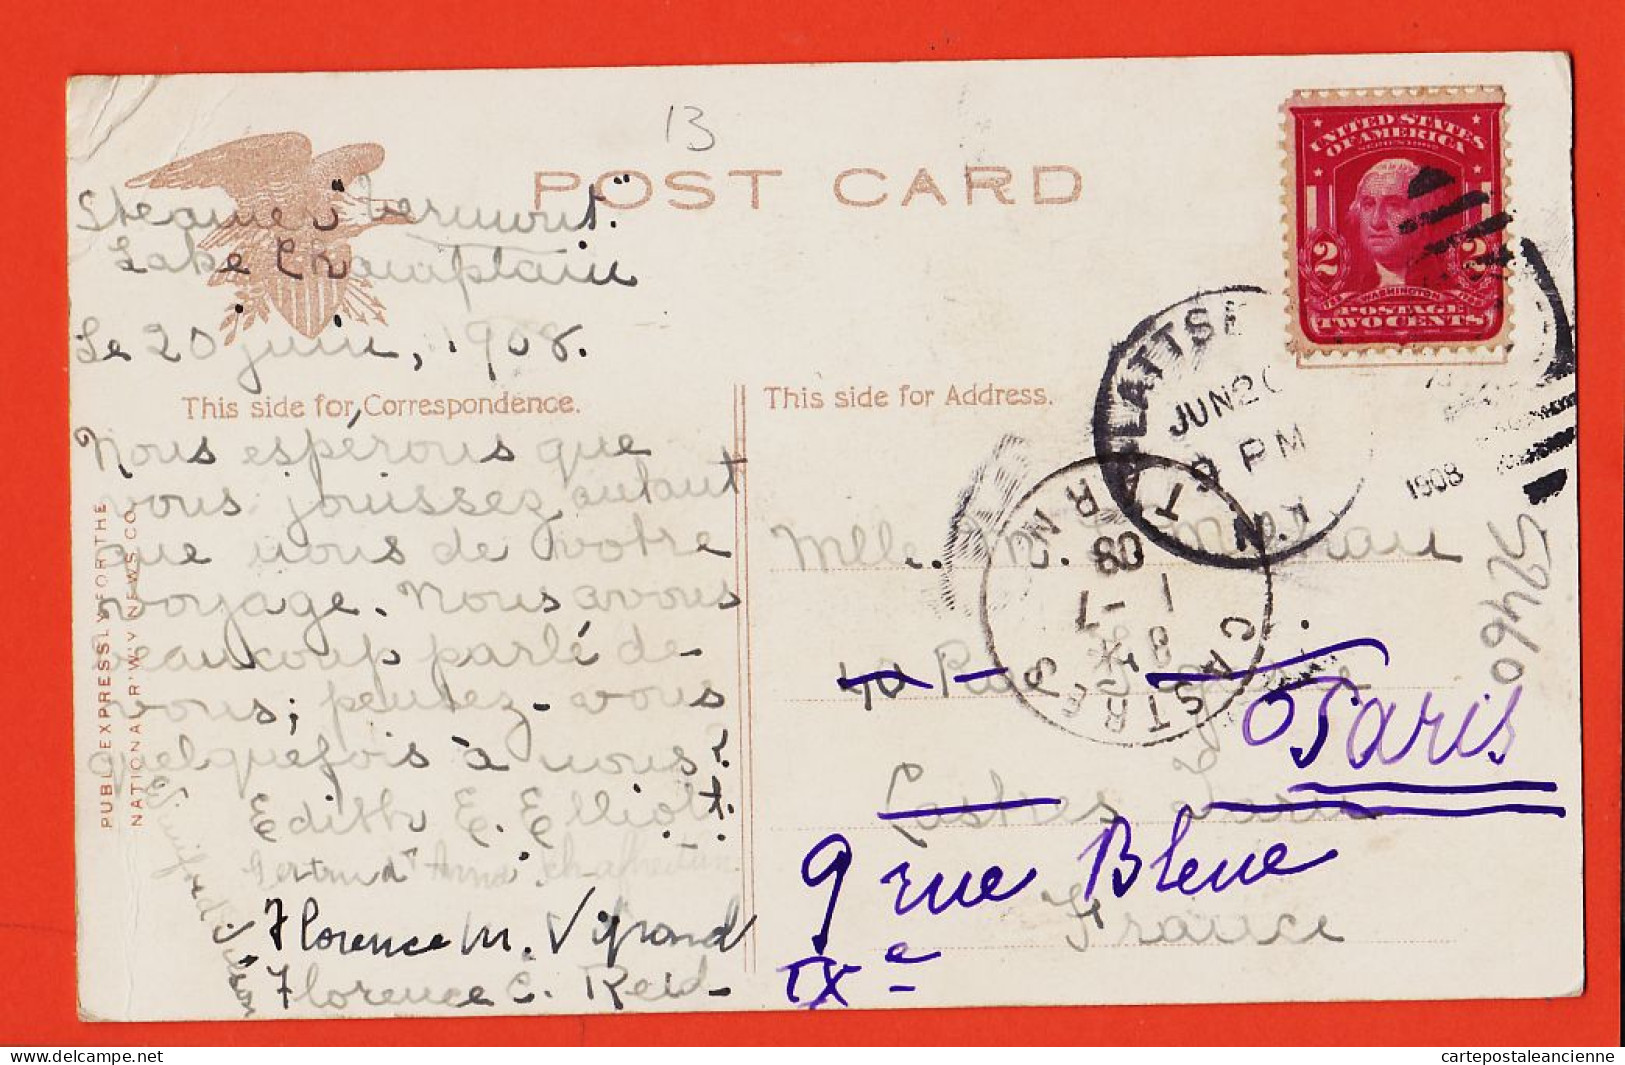 13
POST CARD
Steamer "Vermont."
Lake Champlain
Le 20 juin, 1908.
This side for Correspondence.
Nous esperons que
vous jouissez autant
que nous de votre
voyage. Nous avons
beaucoup parlé de
vous; pensez-vous
quelquefois à nous?
Edith E. Elliott.
Gertrud Anna
Florence M. Vifrond
Florence C. Reid
PUBL. EXPRESSLY FOR THE
NATIONAL R'W'Y NEWS CO.
This side for Address.
UNITED STATES
OF AMERICA
SERIES 1902
2 2
WASHINGTON
POSTAGE
TWO CENTS
PLATTSB
JUN 20
9 PM
N.Y.
1908
CASTRES
TARN
1 -7
08
Mlle. M.
40 Rue
Castres Tarn
France
Paris
9 rue Bleue
IXe
52460
cartepostaleancienne